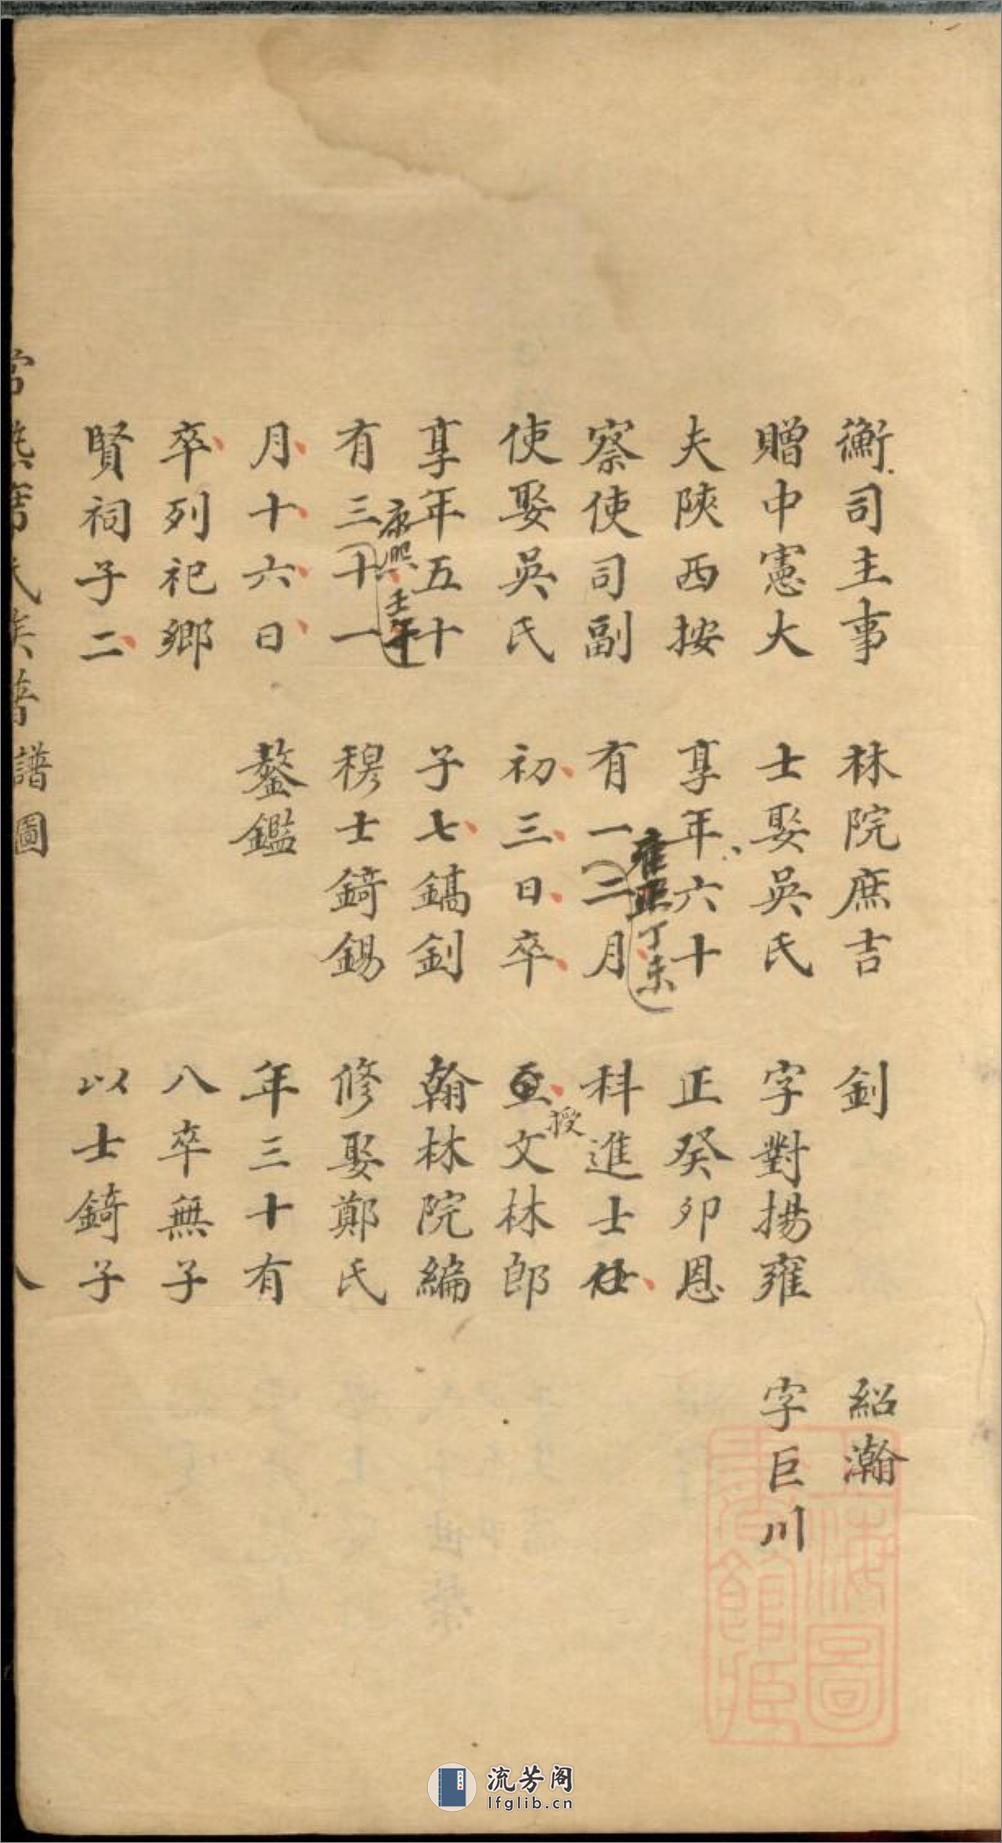 衡司主事
贈中憲大
夫陝西按
察使司副
使娶吳氏
享年五十
康熙壬午
有三十一
月十六日
卒列祀鄉
賢祠子二
林院庶吉
士娶吳氏
享年六十
雍正丁未
有一二月
初三日卒
子七鎬釗
穆士錡錫
鏊鑑
釗
字對揚雍
正癸卯恩
科進士仕
授
至文林郎
翰林院編
修娶鄭氏
年三十有
八卒無子
以士錡子
紹瀚
字巨川
氏族譜
譜圖
圖
館
流芳阁
lfglib.cn